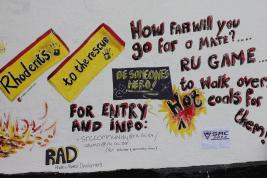 Rhodent's
to the rescue
BE SOMEONE'S
HERO!
HOW FAR WILL YOU
GO FOR A MATE?....
RU GAME...
TO WALK OVER
HOT COALS FOR
THEM!
FOR ENTRY
AND INFO:
RAD
SMC